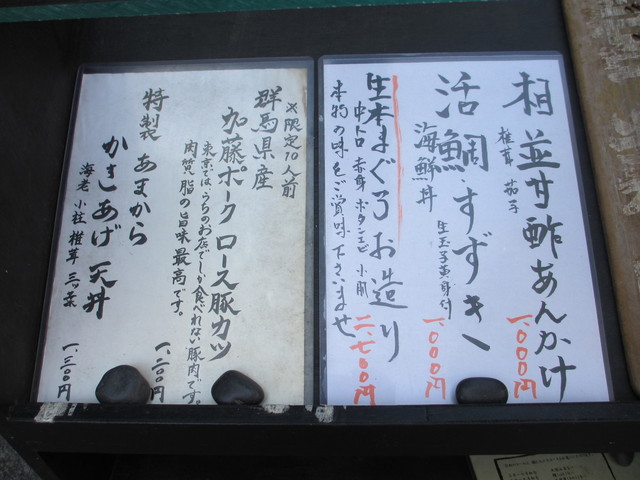 相並甘酢あんかけ
椎茸 茄子
一、000円
活鯛・すずき
海鮮丼
生玉子黄身付
一、000円
生本まぐろお造り
中トロ 赤身 ボタンエビ 小肌
本物の味をご賞味下さいませ
二、七00円
※限定10人前
群馬県産
加藤ポーク ロース豚カツ
東京では、うちのお店でしか食べれない豚肉です。
肉質、脂の旨味 最高です。
一、二00円
特製 あまから
かきあげ 天丼
海老 小柱 椎茸 三ツ葉
一、三00円